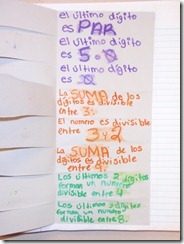 el último dígito
es PAR
El último dígito
es 5 o 0
el último dígito
es 0
La SUMA de los
dígitos es divisible
entre 3.
El número es divisible
entre 3 y 2
La SUMA de los
dígitos es divisible
entre 9.
Los últimos 2 dígitos
forman un número
divisible entre 4
Los últimos 3 dígitos
forman un número
divisible entre 8.